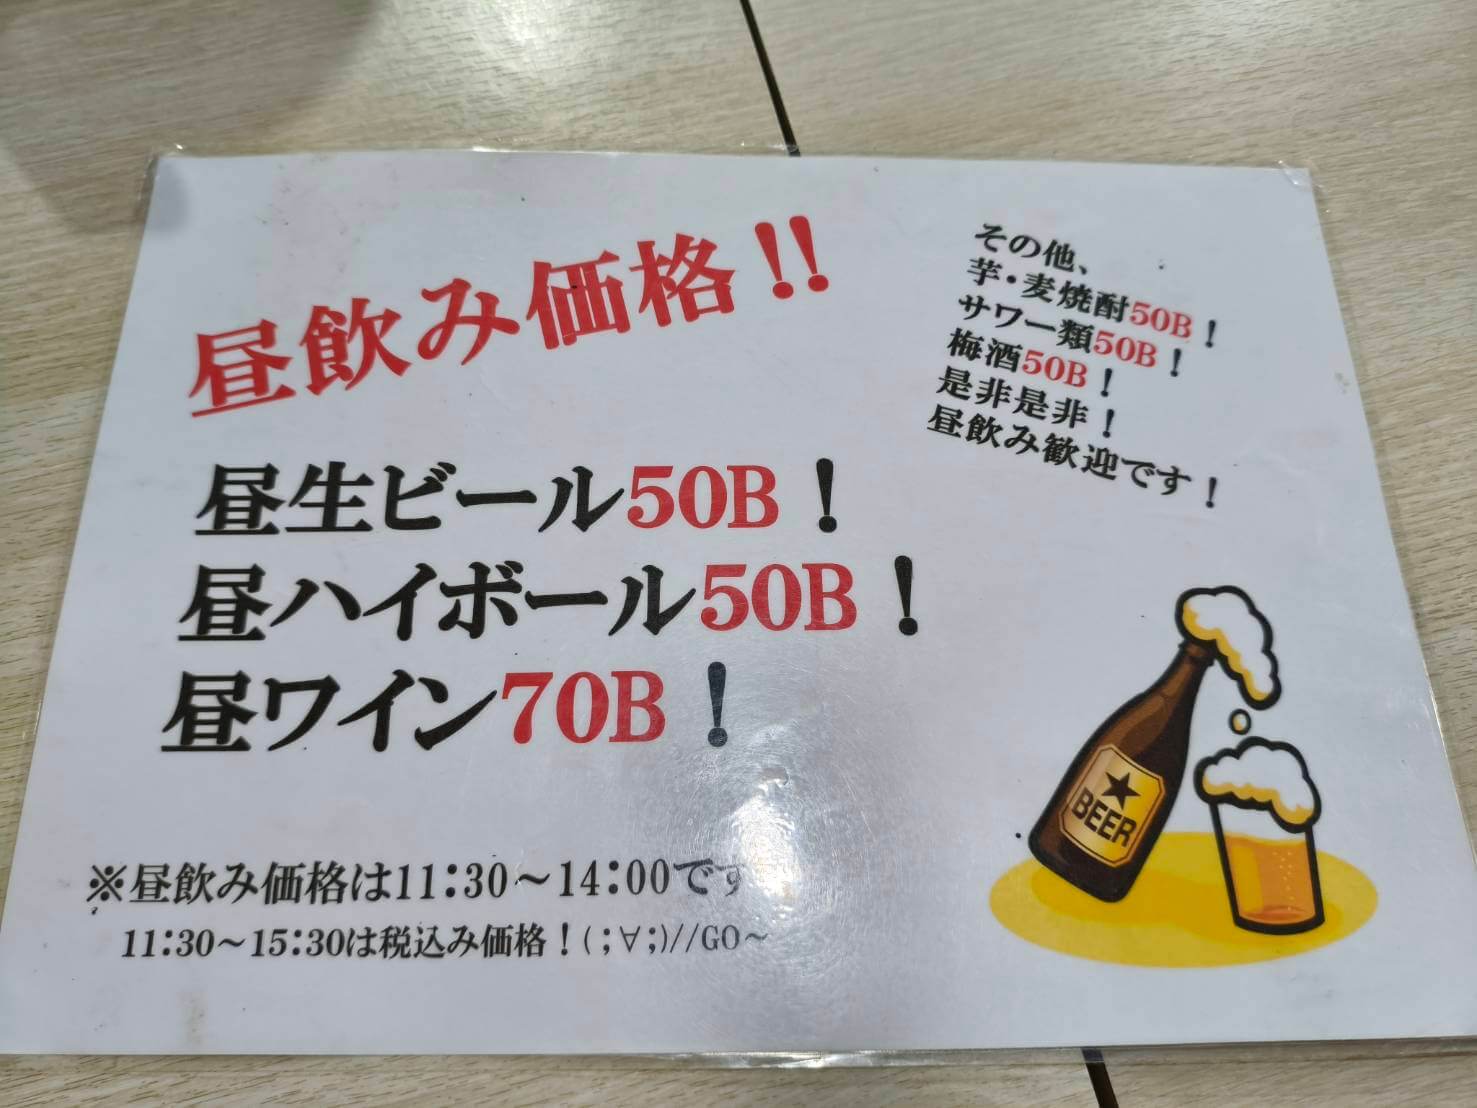 昼飲み価格!!
その他、
芋・麦焼酎50B！
サワー類50B！
梅酒50B！
是非是非！
昼飲み歓迎です！
昼生ビール50B！
昼ハイボール50B！
昼ワイン70B！
※昼飲み価格は11:30～14:00です
11:30～15:30は税込み価格！(；∀；)//GO～
BEER